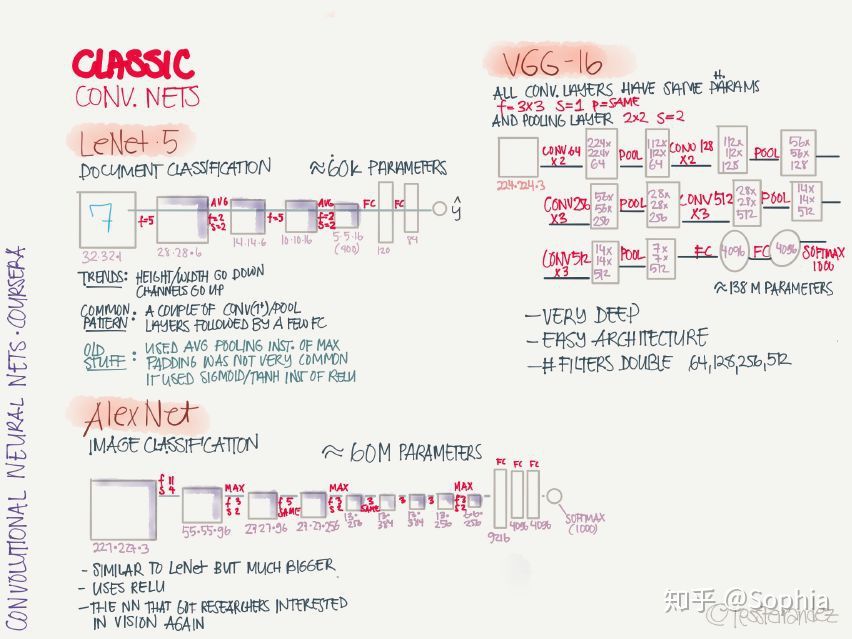 CLASSIC
CONV. NETS
LeNet-5
DOCUMENT CLASSIFICATION ≈60K PARAMETERS
7
f=5
AVG
f=2
S=2
f=5
AVG
f=2
S=2
FC
FC
ŷ
32·32·1
28·28·6
14·14·6
10·10·16
5·5·16
(400)
120
84
TRENDS: HEIGHT/WIDTH GO DOWN
CHANNELS GO UP
COMMON PATTERN: A COUPLE OF CONV(1+)/POOL
LAYERS FOLLOWED BY A FEW FC
OLD STUFF: USED AVG POOLING INST. OF MAX
PADDING WAS NOT VERY COMMON
IT USED SIGMOID/TANH INST OF RELU
AlexNet
IMAGE CLASSIFICATION ≈ 60M PARAMETERS
f 11
S 4
MAX
f 3
S 2
f 5
SAME
MAX
f 3
S 2
3
SAME
3
3
MAX
f 3
S 2
FC
FC
FC
227·227·3
55·55·96
27·27·96
27·27·256
13·
256
13·
384
13·
384
13·
256
6·6·
256
9216
4096
4096
SOFTMAX
(1000)
- SIMILAR TO LeNet BUT MUCH BIGGER
- USES RELU
- THE NN THAT GOT RESEARCHERS INTERESTED
IN VISION AGAIN
VGG-16
ALL CONV. LAYERS HAVE SAME PARAMS
f=3x3 S=1 P=SAME
AND POOLING LAYER 2x2 S=2
224·224·3
CONV 64
x2
224x
224x
64
POOL
112x
112x
64
CONV 128
x2
112x
112x
128
POOL
56x
56x
128
CONV256
x3
56x
56x
256
POOL
28x
28x
256
CONV 512
x3
28x
28x
512
POOL
14x
14x
512
CONV512
x3
14x
14x
512
POOL
7x
7x
512
FC
4096
FC
4096
SOFTMAX
1000
≈138 M PARAMETERS
- VERY DEEP
- EASY ARCHITECTURE
- # FILTERS DOUBLE 64,128,256,512
CONVOLUTIONAL NEURAL NETS · COURSERA
知乎 @Sophia
©TessFerrandez